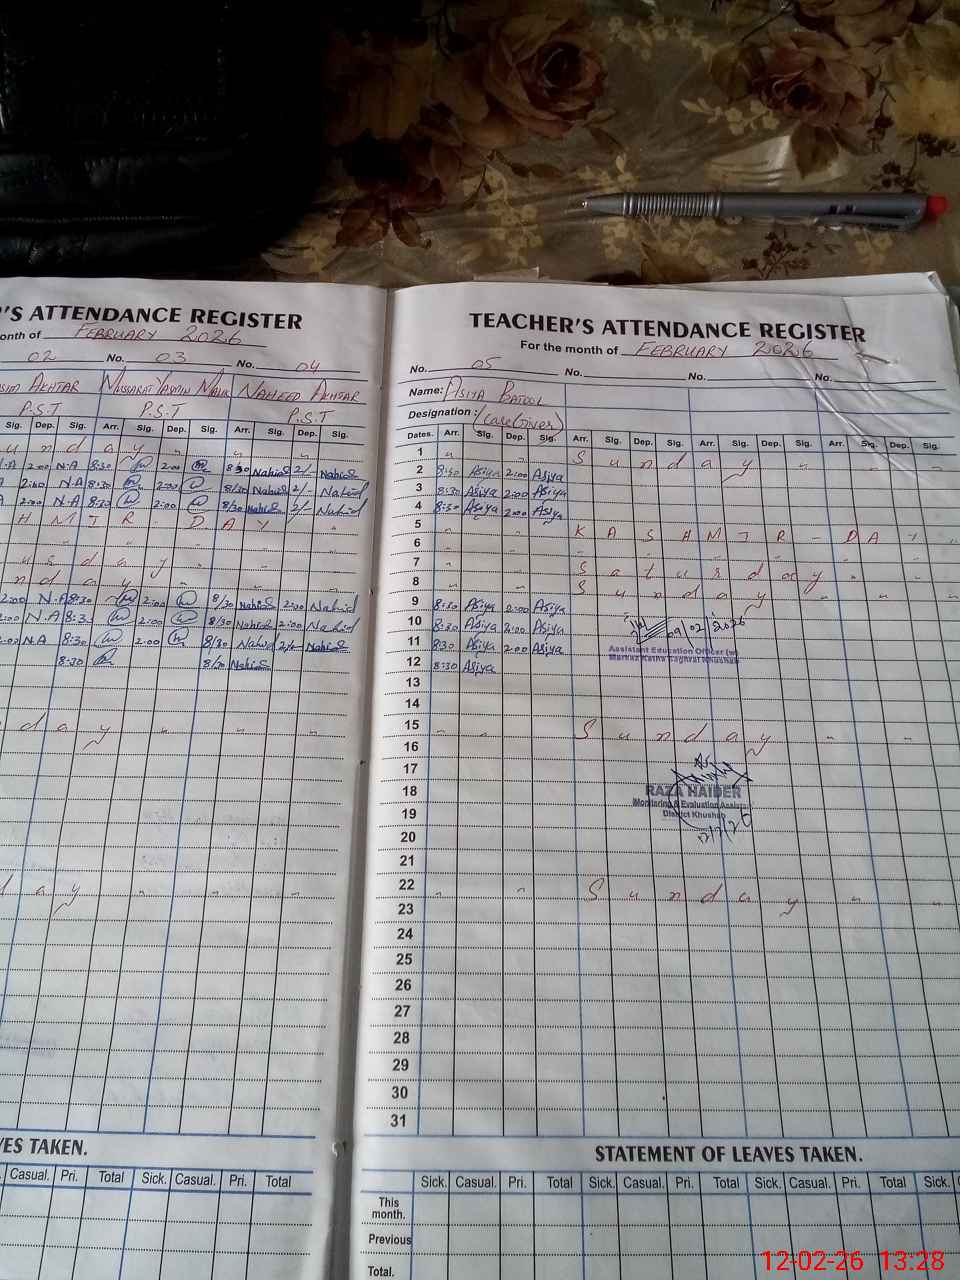 'S ATTENDANCE REGISTER
onth of FEBRUARY 2026
02 No. 03 No. 04
AKHTAR MUSSARAT YASMIN MALIK NAHEED AKHTAR
P.S.T P.S.T P.S.T
Sig. Dep. Sig. Arr. Sig. Dep. Sig. Arr. Sig. Dep. Sig.
u n d a y " " " "
.A 2:00 N.A 8:30 2:00 8/30 Nahid 2/- Nahid
A 2:00 N.A 8:30 2:00 8/30 Nahid 2/- Nahid
A 2:00 N.A 8:30 2:00 8/30 Nahid 2/- Nahid
H M I R - D A Y "
u r d a y "
n d a y " "
2:00 N.A 8:30 2:00 8/30 Nahid 2:00 Nahid
2:00 N.A 8:3 2:00 8/30 Nahid 2:00 Nahid
2:00 N.A 8:30 2:00 8/30 Nahid 2/- Nahid
8:30 8/30 Nahid
d a y " " "
d a y " " " "
VES TAKEN.
Casual. Pri. Total Sick. Casual. Pri. Total
TEACHER'S ATTENDANCE REGISTER
For the month of FEBRUARY 2026
No. 05 No. No. No.
Name: ASIYA BATOOL
Designation: (Care Giver)
Dates. Arr. Sig. Dep. Sig. Arr. Sig. Dep. Sig. Arr. Sig. Dep. Sig. Arr. Sig. Dep. Sig.
1 " " S u n d a y " " "
2 8:30 Asiya 2:00 Asiya
3 8:30 Asiya 2:00 Asiya
4 8:30 Asiya 2:00 Asiya
5 " " K A S H M I R - D A Y "
6
7 " " S a t u r d a y " " "
8 " " S u n d a y " " "
9 8:30 Asiya 2:00 Asiya
10 8:30 Asiya 2:00 Asiya 09/02/2026
11 8:30 Asiya 2:00 Asiya Assistant Education Officer (w)
12 8:30 Asiya
13
14
15 " " S u n d a y " "
16
17
18 RAZA HAIDER
Monitoring & Evaluation Assista
19 District Khushab
20
21
22 " " S u n d a y " "
23
24
25
26
27
28
29
30
31
STATEMENT OF LEAVES TAKEN.
Sick. Casual. Pri. Total Sick. Casual. Pri. Total Sick. Casual. Pri. Total Sick.
This month.
Previous
Total.
12-02-26 13:28